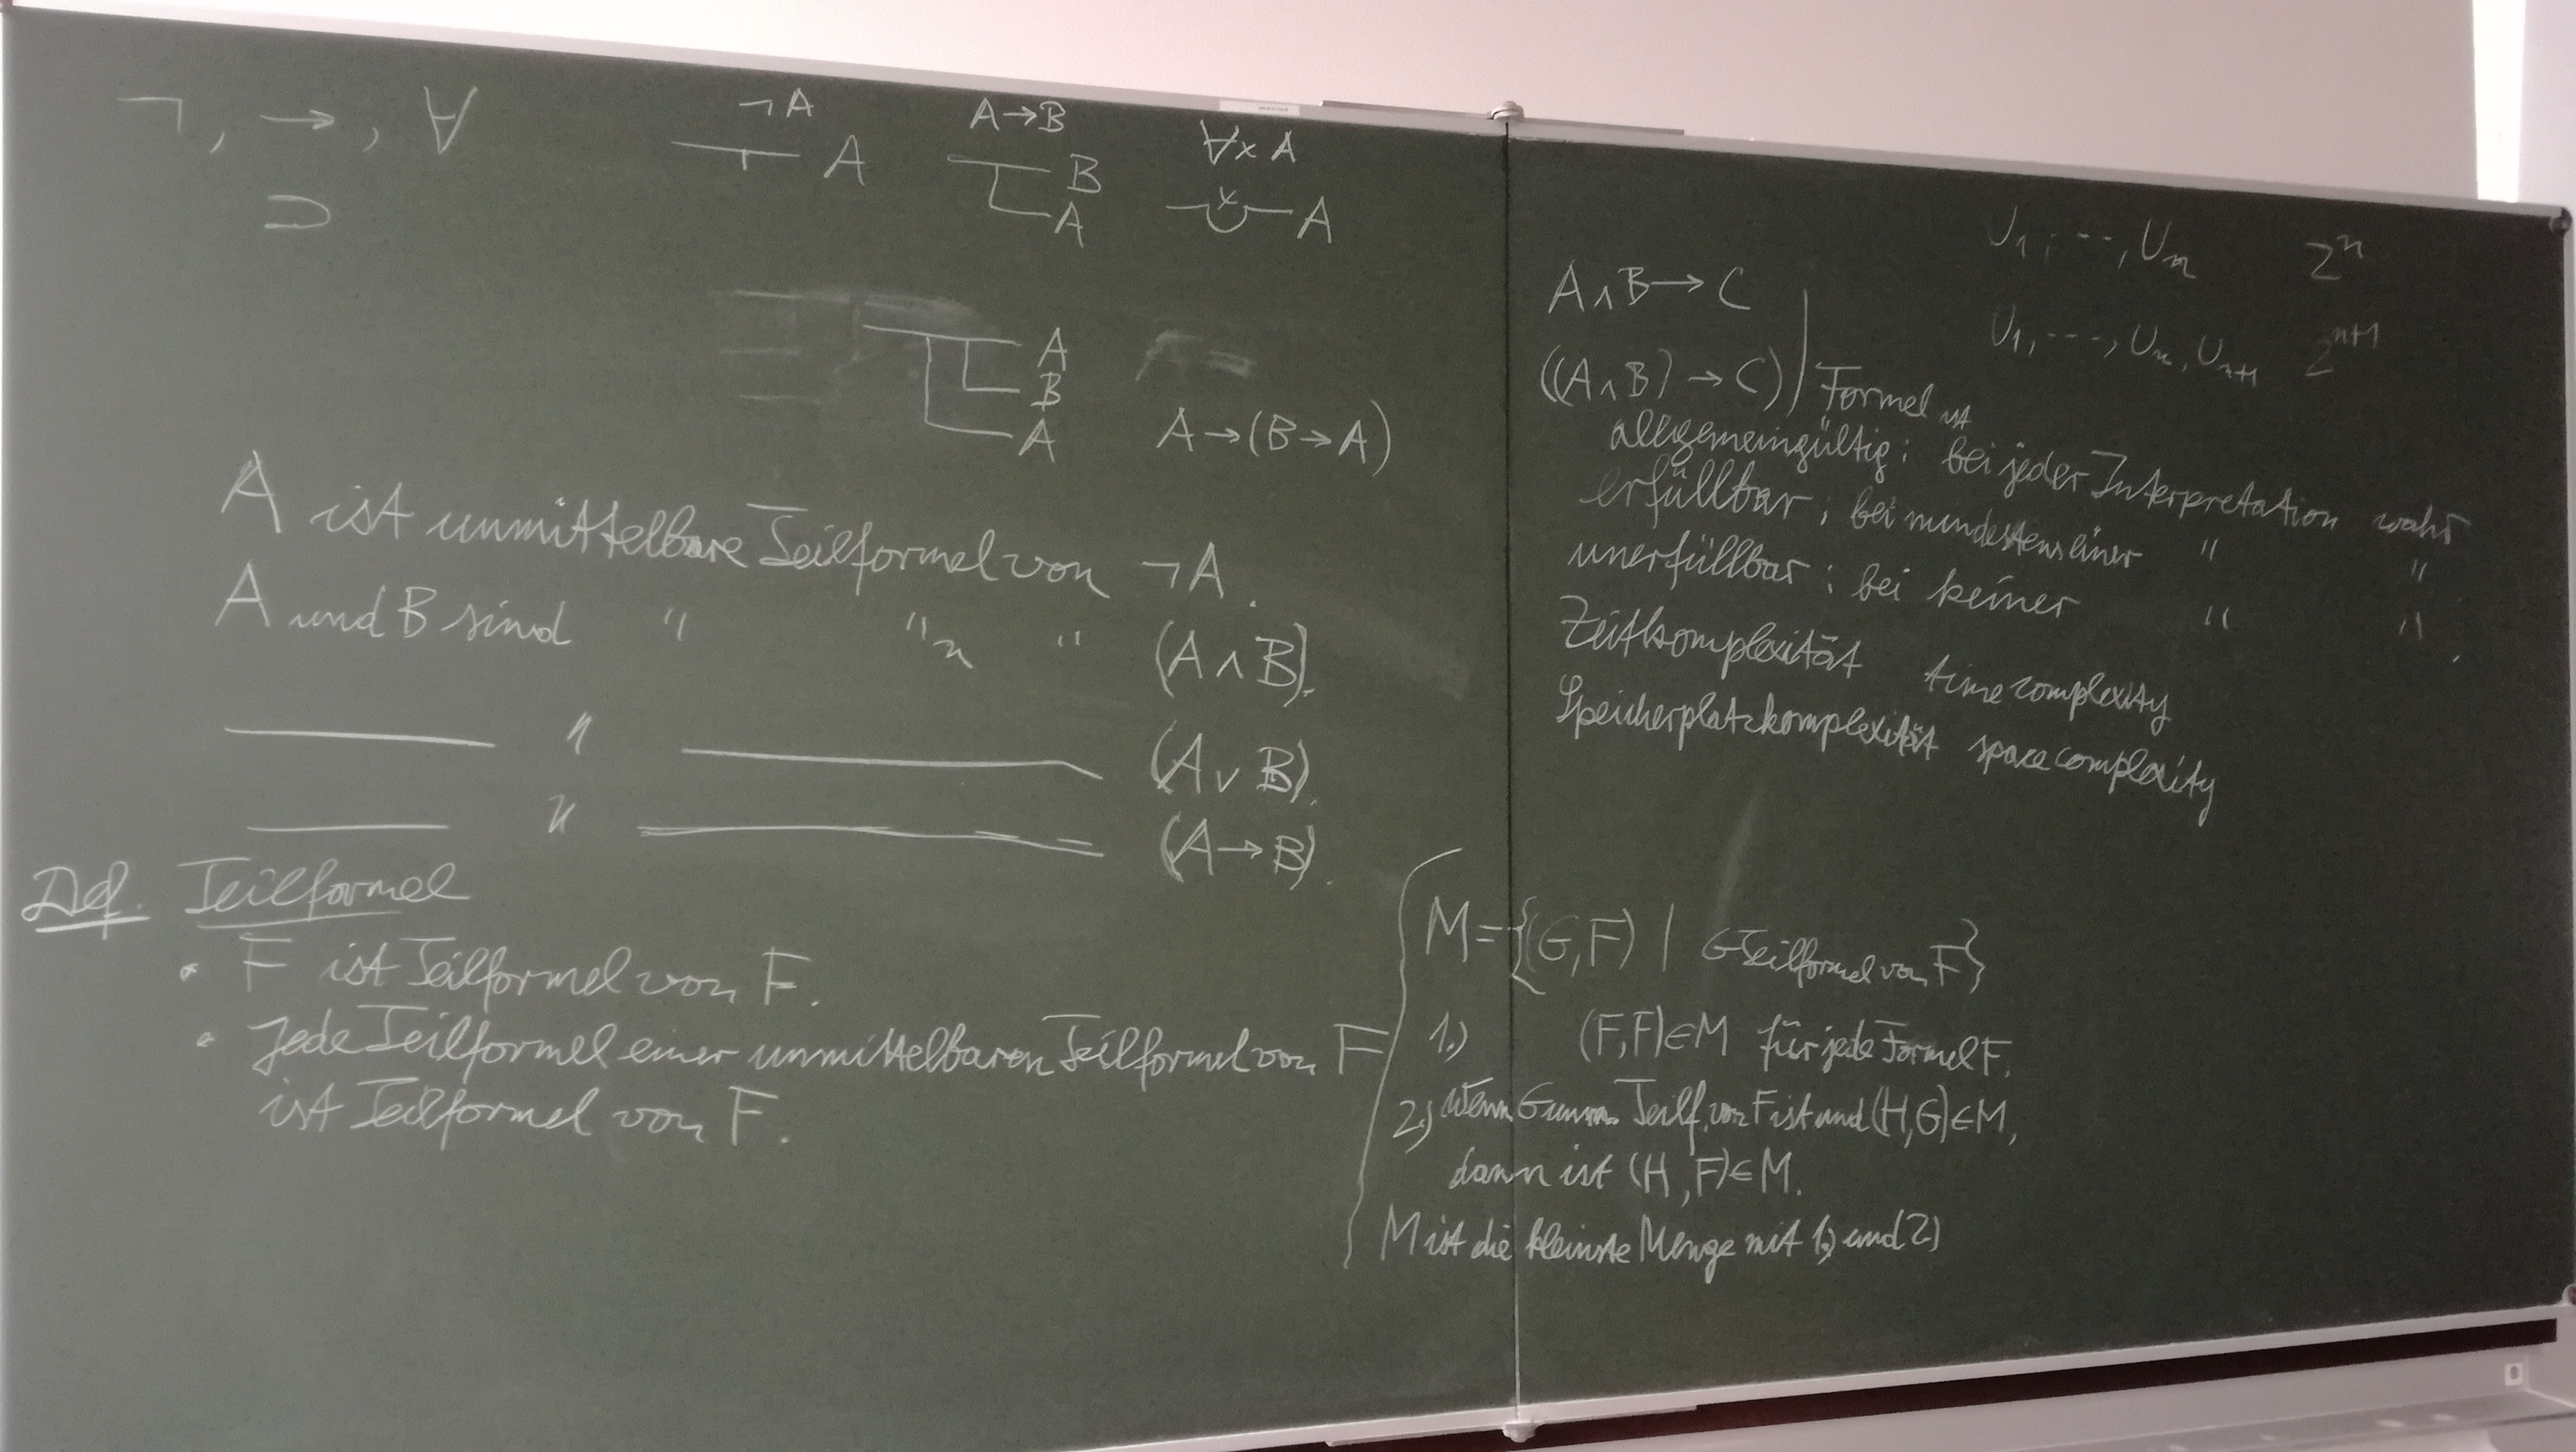 ¬, →, ∀
⊃
¬A
A
A→B
B
A
∀x A
x
A
A
B
A
A→(B→A)
A ist unmittelbare Teilformel von ¬A.
A und B sind " "n " (A∧B).
" (A∨B).
" (A→B).
Def. Teilformel
• F ist Teilformel von F.
• Jede Teilformel einer unmittelbaren Teilformel von F
ist Teilformel von F.
U1, ---, Un 2^n
U1, ---, Un, Un+1 2^n+1
A∧B→C
((A∧B)→C)
Formel ist
allgemeingültig: bei jeder Interpretation wahr
erfüllbar: bei mindestens einer " "
unerfüllbar: bei keiner " ".
Zeitkomplexität time complexity
Speicherplatzkomplexität space complexity
M={(G,F) | G Teilformel von F}
1.) (F,F)∈M für jede Formel F.
2.) Wenn G unm. Teilf. von F ist und (H,G)∈M,
dann ist (H,F)∈M.
M ist die kleinste Menge mit 1.) und 2.)